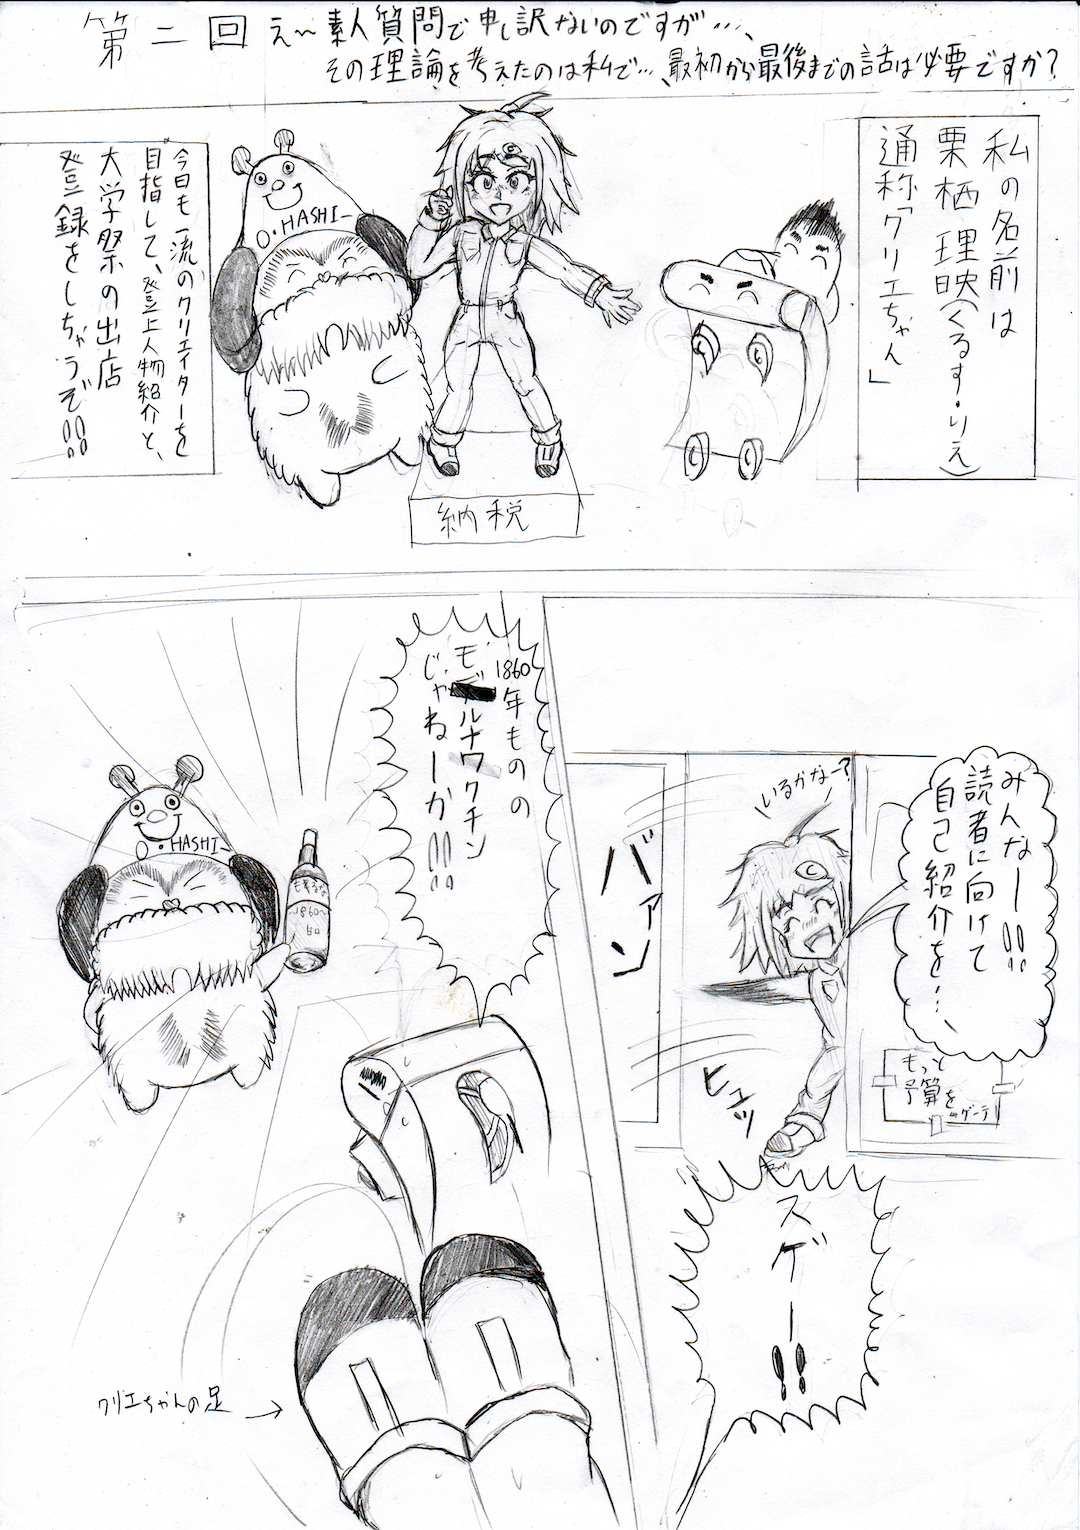 第二回 え〜素人質問で申し訳ないのですが…、
その理論を考えたのは私で…、最初から最後までの話は必要ですか?
私の名前は
栗栖理映(くるす・りえ)
通称「クリエちゃん」
今日も一流のクリエイターを
目指して、登上人物紹介と、
大学祭の出店
登録をしちゃうぞ!!!
O・HASHI
納税
みんなー!!!
読者に向けて
自己紹介を…
いるかなー?
バァン
ヒュッ
もっと
予算を
1860年ものの
モデルナワクチン
じゃねーか!!!
O・HASHI
1860
スゲー!!
クリエちゃんの足